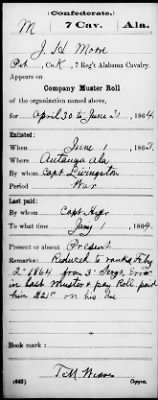 (Confederate.)
M 7 Cav. Ala.
J. H. Moore
Pvt, Co. K, 7 Reg't Alabama Cavalry.
Appears on
Company Muster Roll
of the organization named above,
for April 30 to June 30, 1864
Enlisted:
When June 1, 1863.
Where Autauga Ala
By whom Capt Livingston
Period War
Last paid:
By whom Capt
To what time Jany 1, 1864.
Present or absent Present
Remarks: Reduced to ranks Feby
2d 1864 from 3d Sergt. Error
in last muster & pay Roll. paid
him $21 00 on his due
Book mark:
(642) Copyist.